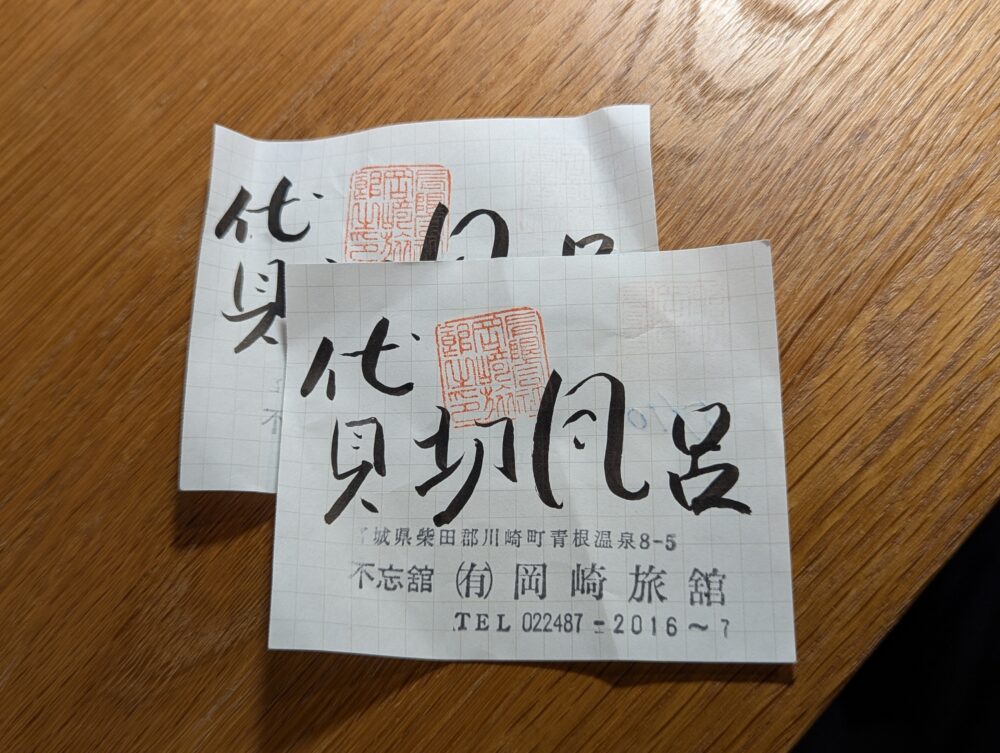 貸切風呂
城県柴田郡川崎町青根温泉8-5
不忘舘 ㈲ 岡崎旅舘
TEL 022487-2016~7
貸
呂
不